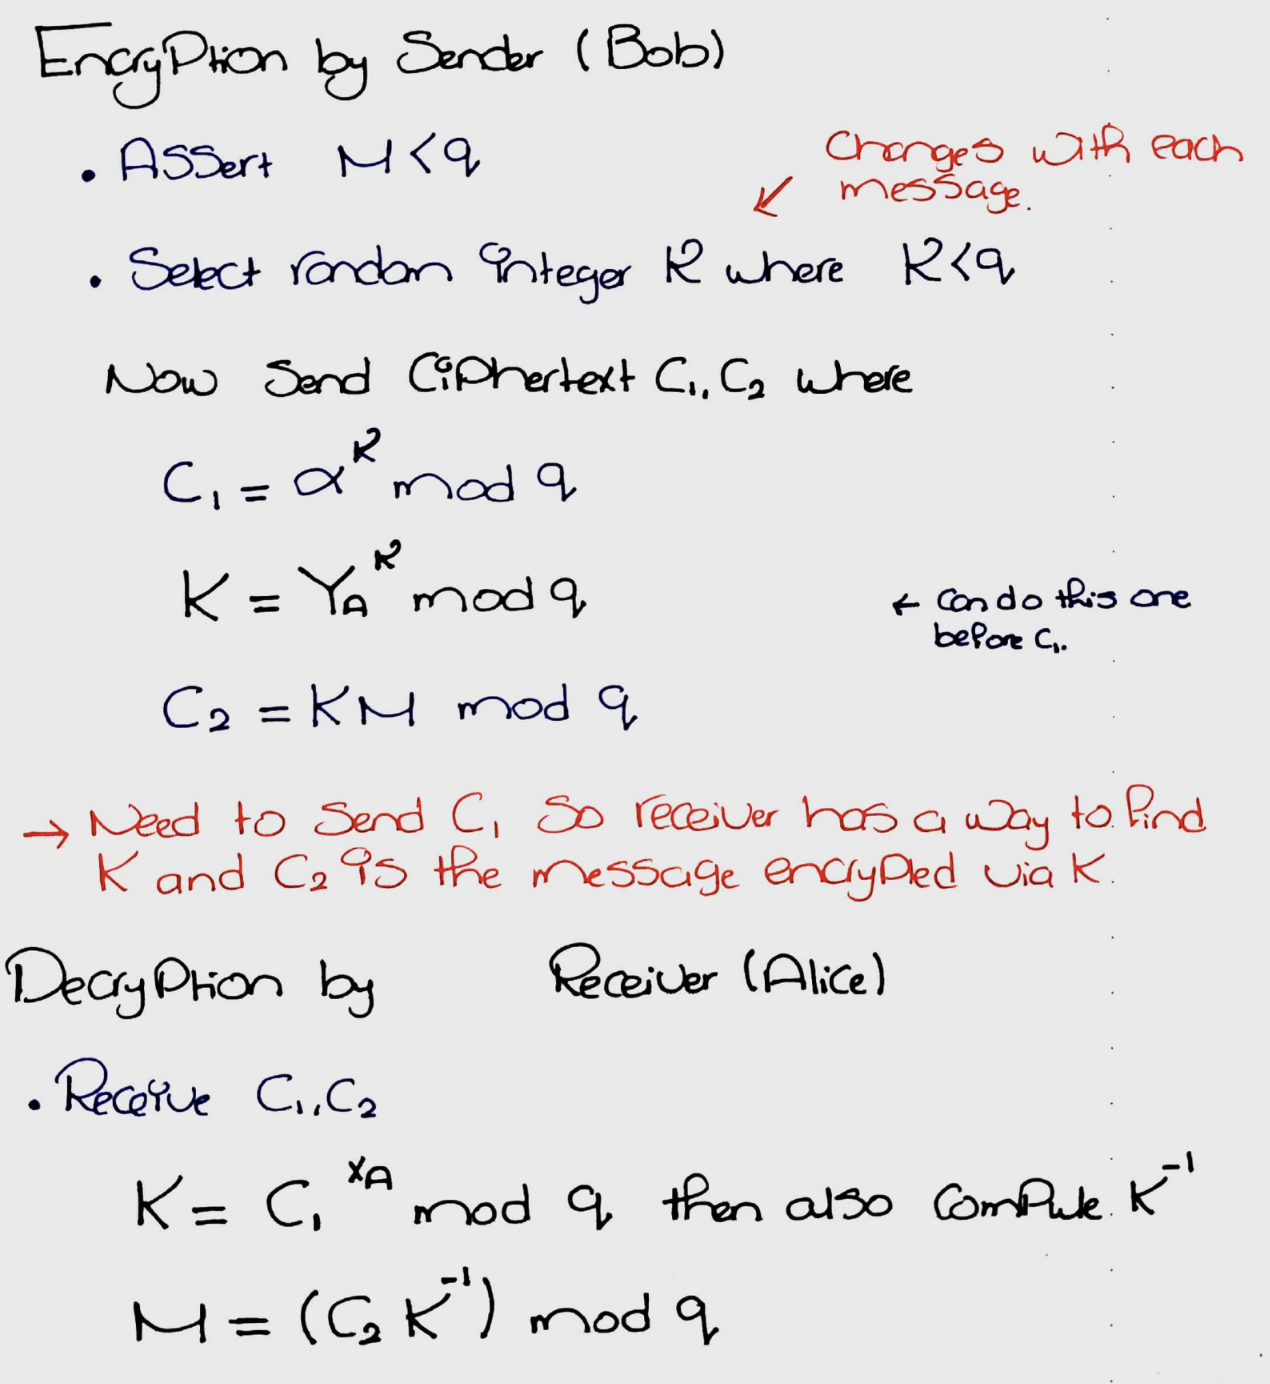 Encryption by Sender (Bob)
• Assert M<q
Changes with each
↙ message.
• Select random integer k where k<q
Now send Ciphertext C₁, C₂ where
C₁ = α^k mod q
K = Y_A^k mod q
← Can do this one
before C₁.
C₂ = KM mod q
→ Need to send C₁ so receiver has a way to find
K and C₂ is the message encrypted via K.
Decryption by Receiver (Alice)
• Receive C₁, C₂
K = C₁^{X_A} mod q then also Compute K⁻¹
M = (C₂ K⁻¹) mod q